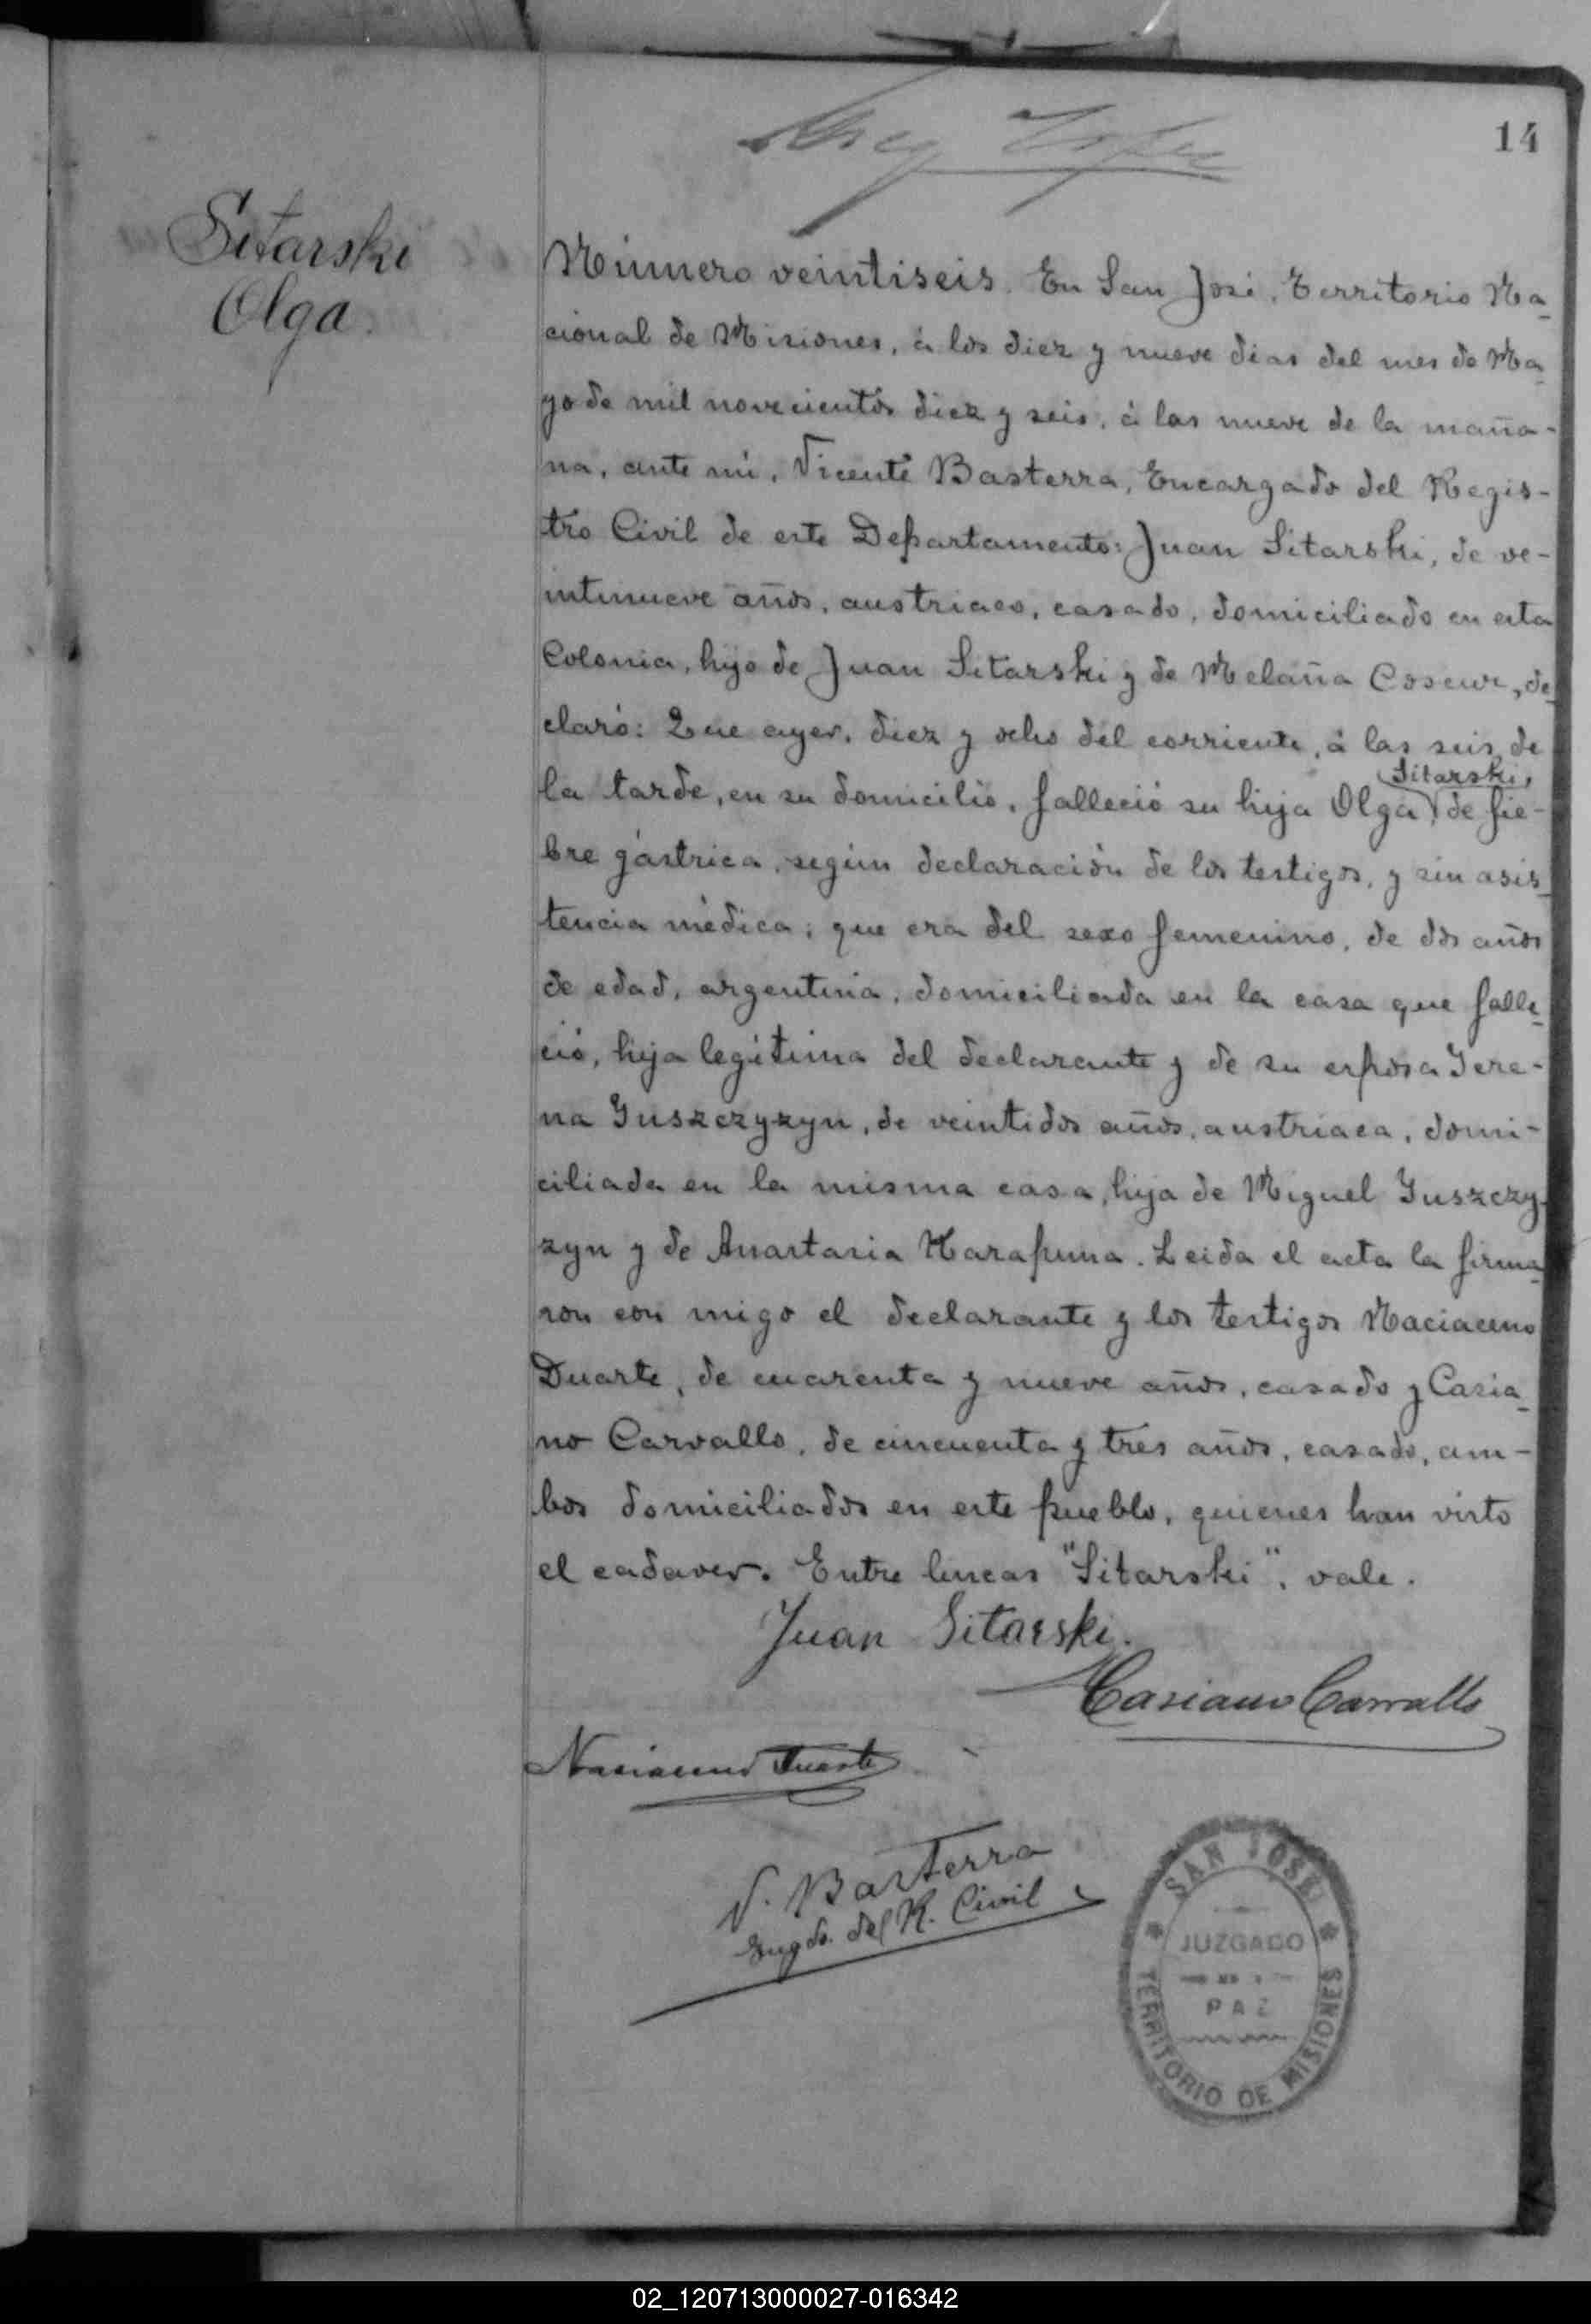 14
Sitarski
Olga.
Número veintiseis. En San José, Territorio Na-
cional de Misiones, á los diez y nueve dias del mes de Ma-
yo de mil novecientos diez y seis, á las nueve de la maña-
na, ante mi, Vicente Basterra, Encargado del Regis-
tro Civil de este Departamento: Juan Sitarski, de ve-
intinueve años, austriaco, casado, domiciliado en esta
Colonia, hijo de Juan Sitarski y de Melaña, de-
claró: Que ayer, diez y ocho del corriente, á las seis de
Sitarski,
la tarde, en su domicilio, falleció su hija Olga, de fie-
bre gástrica, según declaración de los testigos, y sin asis-
tencia médica; que era del sexo femenino, de dos años
de edad, argentina, domiciliada en la casa que falle-
ció, hija legítima del declarante y de su esposa Jere-
na Juszczyzyn, de veintidos años, austriaca, domi-
ciliada en la misma casa, hija de Miguel Juszczy-
zyn y de Anastasia Harapuna. Leida el acta la firma-
ron con migo el declarante y los testigos Naciaceno
Duarte, de cuarenta y nueve años, casado y Casia-
no Carvallo, de cincuenta y tres años, casado, am-
bos domiciliados en este pueblo, quienes han visto
el cadaver. Entre lineas "Sitarski", vale.
Juan Sitarski.
Casiano Carvallo
Naciaceno Duarte
V. Basterra
Engdo. del R. Civil
SAN JOSE
JUZGADO
DE
PAZ
TERRITORIO DE MISIONES
02_120713000027-016342